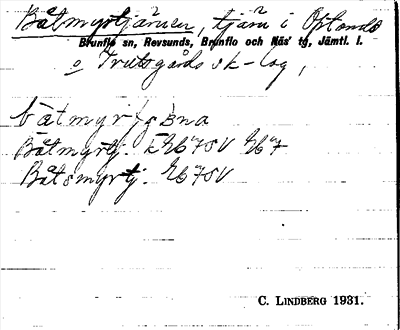 Båtmyrtjärnen, tjärn i Optands
Brunflo sn, Revsunds, Brunflo och Näs' tg, Jämtl. l.
o Trusgårds sk-lag,
båtmyr
Båtmyrtj.
Båtsmyrtj.
C. LINDBERG 1931.